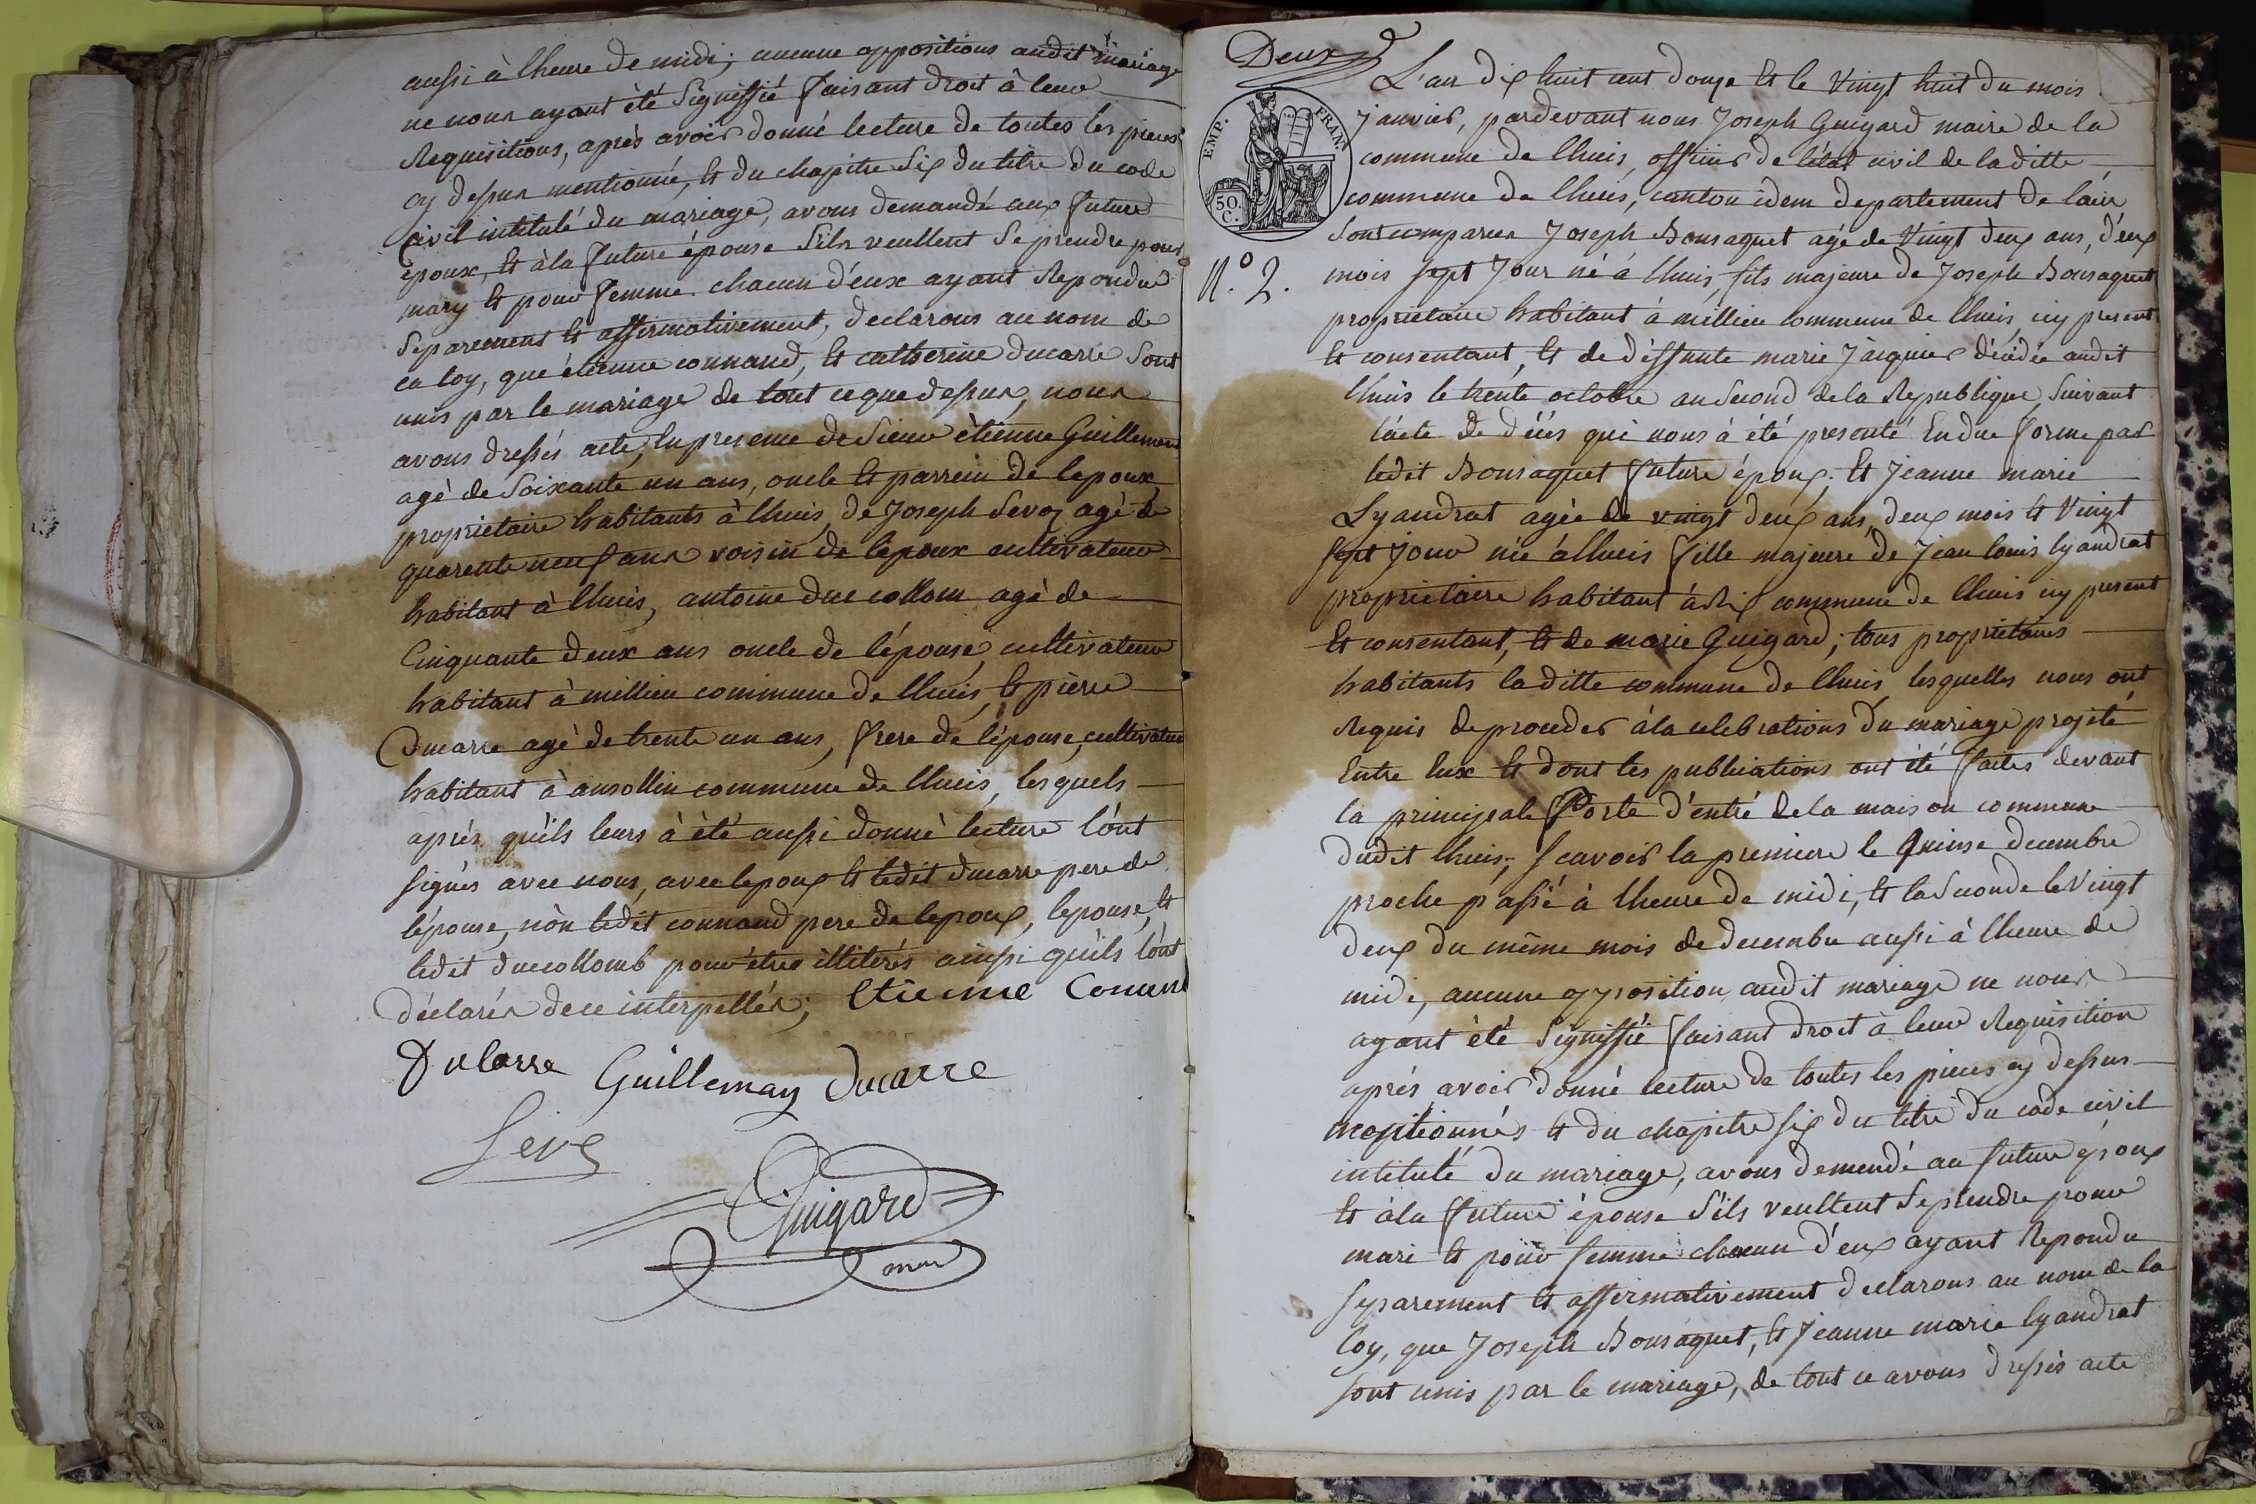 aussi à lheure de midi; aucune oppositions audit mariage
ne nous ayant été Signiffié faisant droit à leur
Requisitions, aprés avoir donné lecture de toutes les pieces
cy dessus mentionné, et du chapitre Six du titre du code
Civil intitulé du mariage, avons demandé aux future
époux, et à la future épouse Sils veullent Se prendre pour
mary et pour femme. chacun d'eux ayant Repondue
Separement et affirmativement, declarons au nom de
la loy, que étienne connand, et catherine ducarre Sont
unis par le mariage de tout ce que dessus, nous
avons dressés acte, En presence de Sieur étienne Guillemans
agé de Soixante un ans, oncle et parrein de lepoux,
proprietaire habitants à lhuis, de Joseph Sevoz agé de
quarente neuf ans voisin de lépoux cultivateur
habitant à lhuis, antoine duccollom agé de
Cinquante deux ans oncle de lépouse, cultivateur
habitant à millieu commune de lhuis, et pierre
Ducarre agé de trente un ans, frere de lépouse, cultivateur
habitant à ansollin commune de lhuis, lesquels
aprés quils leurs à été aussi donné lecture lont
signés avec nous, avec lepoux et ledit ducarre pere de
lépouse, nòn ledit connand pere de lepoux, lepouse, et
ledit duccollomb pour étres illiterés ainsi quils lònt
déclarés de ce interpellés; Etienne Conant
Ducarre Guillemans Ducarre
Seve
Guigard
maire
Deux
EMP. FRAN.
50. C.
N.º 2.
L'an dix huit cent douze Et le Vingt huit du mois
Janvier, pardevant nous Joseph Guigard maire de la
commune de lhuis, officier de létat civil de la ditte
commune de lhuis, canton idem departement de lain
Sont comparus Joseph Bonsaquet agé de Vingt deux ans, deux
mois sept Jour né à lhuis, fils majeure de Joseph Bonsaquet
proprietaire habitant à millieu commune de lhuis, icy present
et consentant, et de déffunte marie Jacquier décédée audit
lhuis le trente octobre an Second de la Republique, Suivant
lácte de décés qui nous à été presenté En due forme par
ledit Bonsaquet future époux. Et Jeanne marie
Lyandrat agée de vingt deux ans, deux mois et Vingt
sept jour née à lhuis fille majeure de Jean louis lyandrat
proprietaire habitant à Rix commune de lhuis icy present
Et consentant, et de marie Guigard; tous proprietaires
habitants la ditte commune de lhuis, lesquelles nous ont
Requis de proceder à la celebrations du mariage projeté
Entre Eux et dont les publications ont été faites devant
la principale Porte d'entré de la maison commune
dudit lhuis; scavoir la premiere le quinse decembre
proche passé à lheure de midi, et la Seconde le Vingt
deux du même mois de decembre aussi à lheure de
midi, aucune opposition audit mariage ne nous
ayant été Signiffié faisant droit à leur Requisition
aprés avoir donné lecture de toutes les pieces cy dessus
mentionnés et du chapitre Six du titre du code civil
intitulé du mariage, avons demendé au future époux
Et à la future épouse S'ils veullent Se prendre pour
mari et pour femme chacun d'eux ayant Repondu
separement et affirmativement declarons au nom de la
loy, que Joseph Bonsaquet, et Jeanne marie lyandrat
sont unis par le mariage, de tout ce avons dressés acte